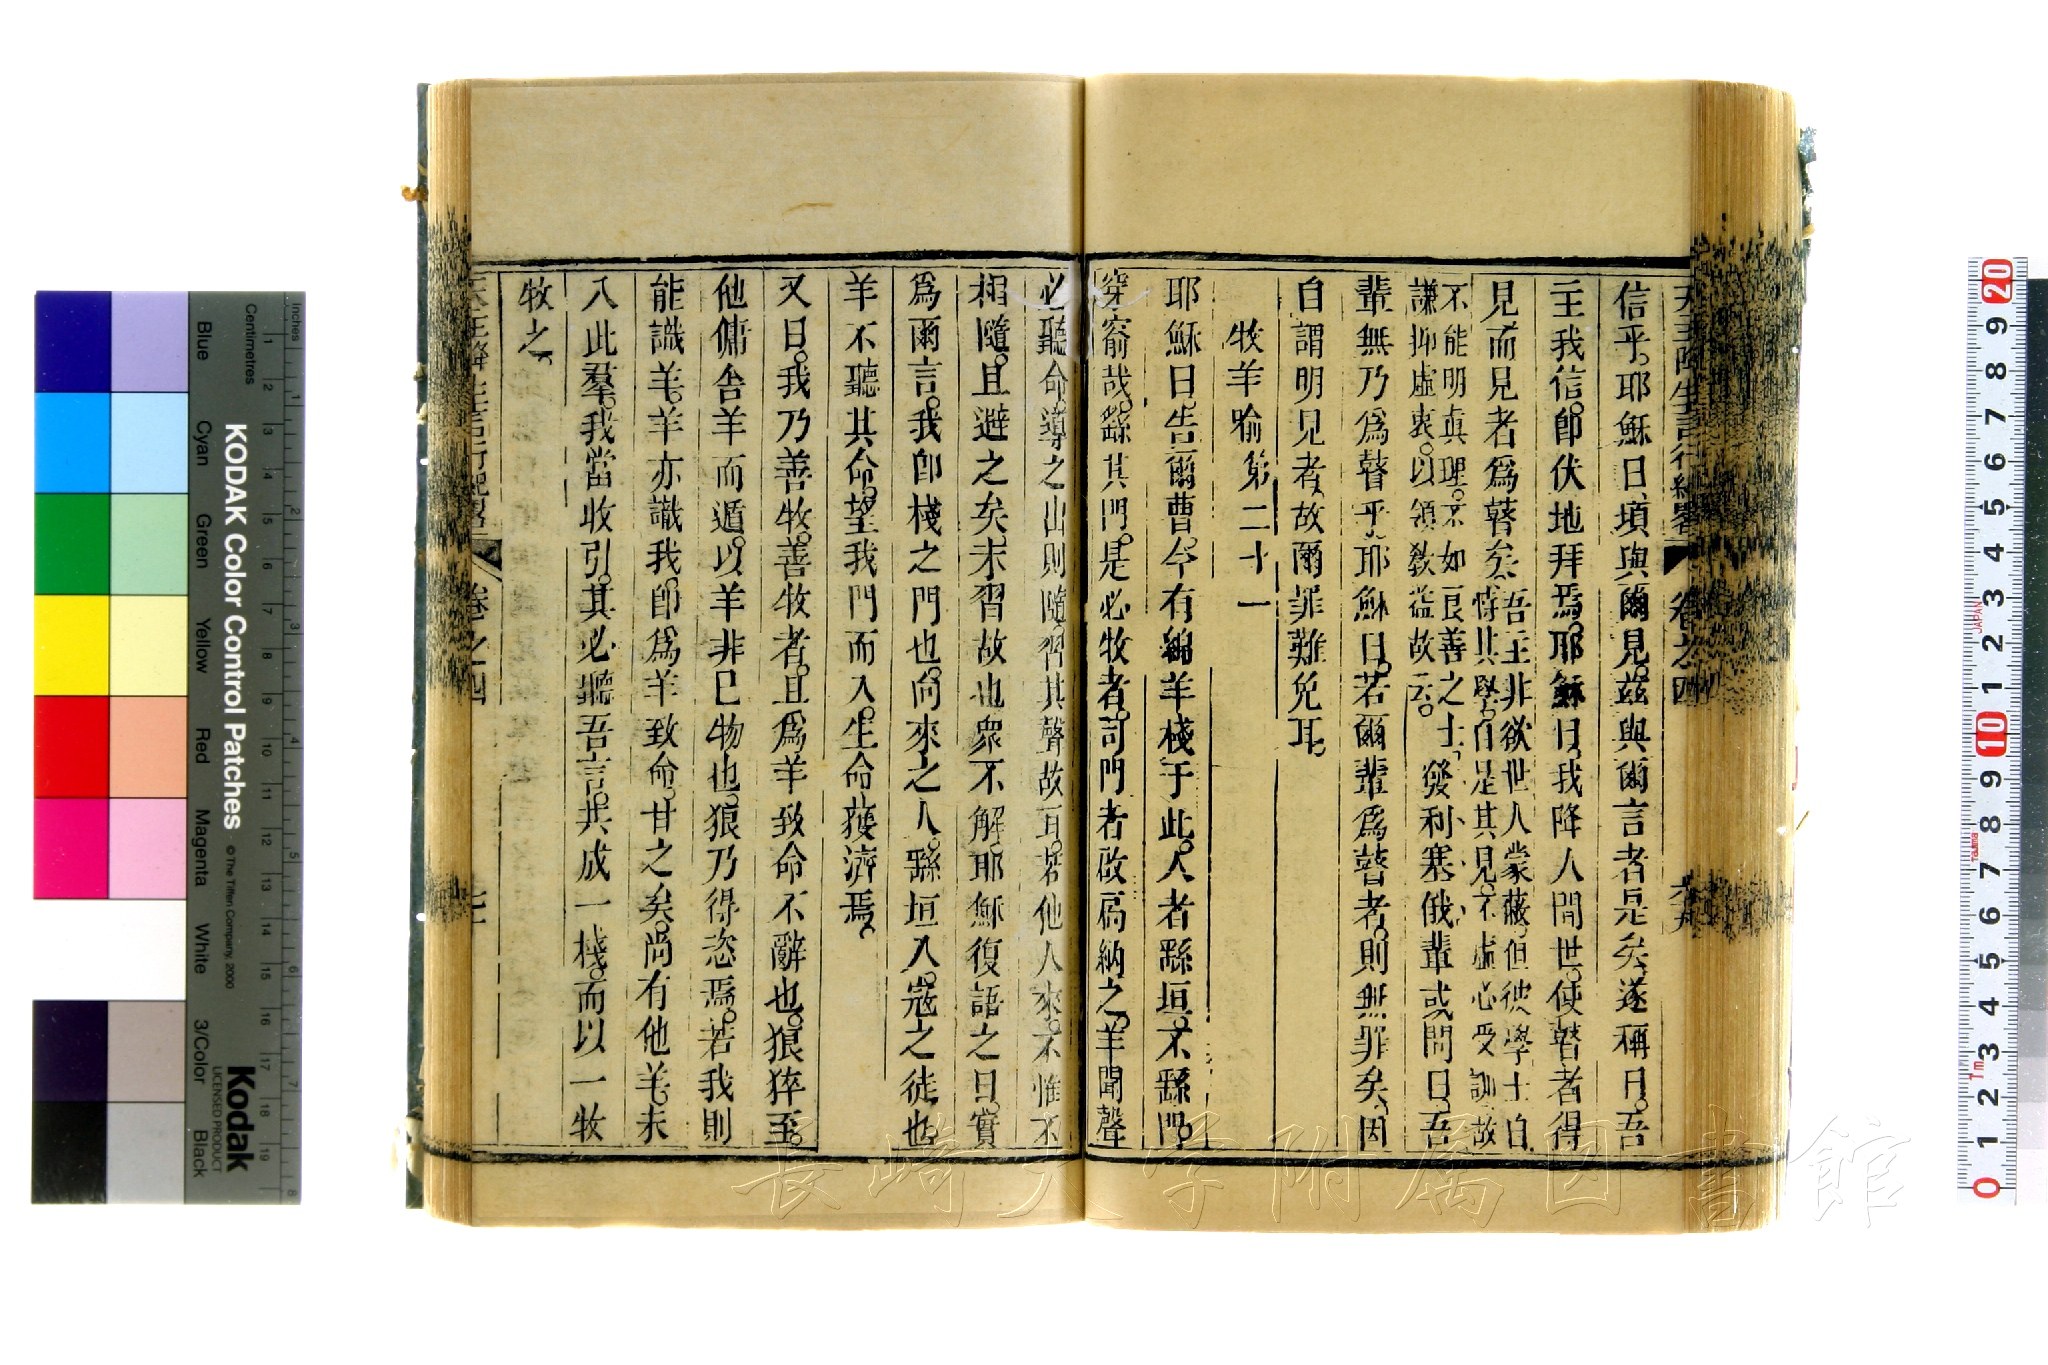 天主降生言行紀畧 卷之四 六九
信乎。耶穌曰、頃與爾見。茲與爾言者是矣。遂稱曰。吾
主我信。卽伏地拜焉。耶穌曰。我降人間世。使瞽者得
見而見者爲瞽矣。吾主非欲世人蒙蔽。但彼學士自
恃其學。自是其見。不虛心受訓故
不能明眞理。不如良善之士。
謙抑虛衷。以領敎益故云。
發利塞俄輩或問曰。吾
輩無乃爲瞽乎。耶穌曰。若爾輩爲瞽者。則無罪矣。因
自謂明見者、故爾罪難免耳。
牧羊喻第二十一
耶穌曰。告爾曹。今有綿羊棧于此。人者繇垣。不繇門。
穿窬哉。繇其門。是必牧者。司門者啟扃納之。羊聞聲
必聽命。導之出則隨。習其聲故耳。若他人來。不惟不
相隨。且避之矣。未習故也衆不解耶穌復語之曰。實
爲爾言。我卽棧之門也。向來之人。繇垣入。寇之徒也
羊不聽其命。望我門而入。生命獲濟焉。
又曰。我乃善牧。善牧者。且爲羊致命不辭也。狼猝至。
他傭舍羊而遁。以羊非已物也。狼乃得恣焉。若我則
能識羊。羊亦識我。卽爲羊致命。甘之矣。尚有他羊。未
入此羣。我當收引。其必聽吾言。共成一棧。而以一牧
牧之。
天主降生言行紀畧 卷之四 七十
KODAK Color Control Patches
© The Tiffen Company, 2000
Kodak
LICENSED PRODUCT
Inches
Centimetres
Blue
Cyan
Green
Yellow
Red
Magenta
White
3/Color
Black
JAPAN
Tajima
1m
長崎大学附属図書館